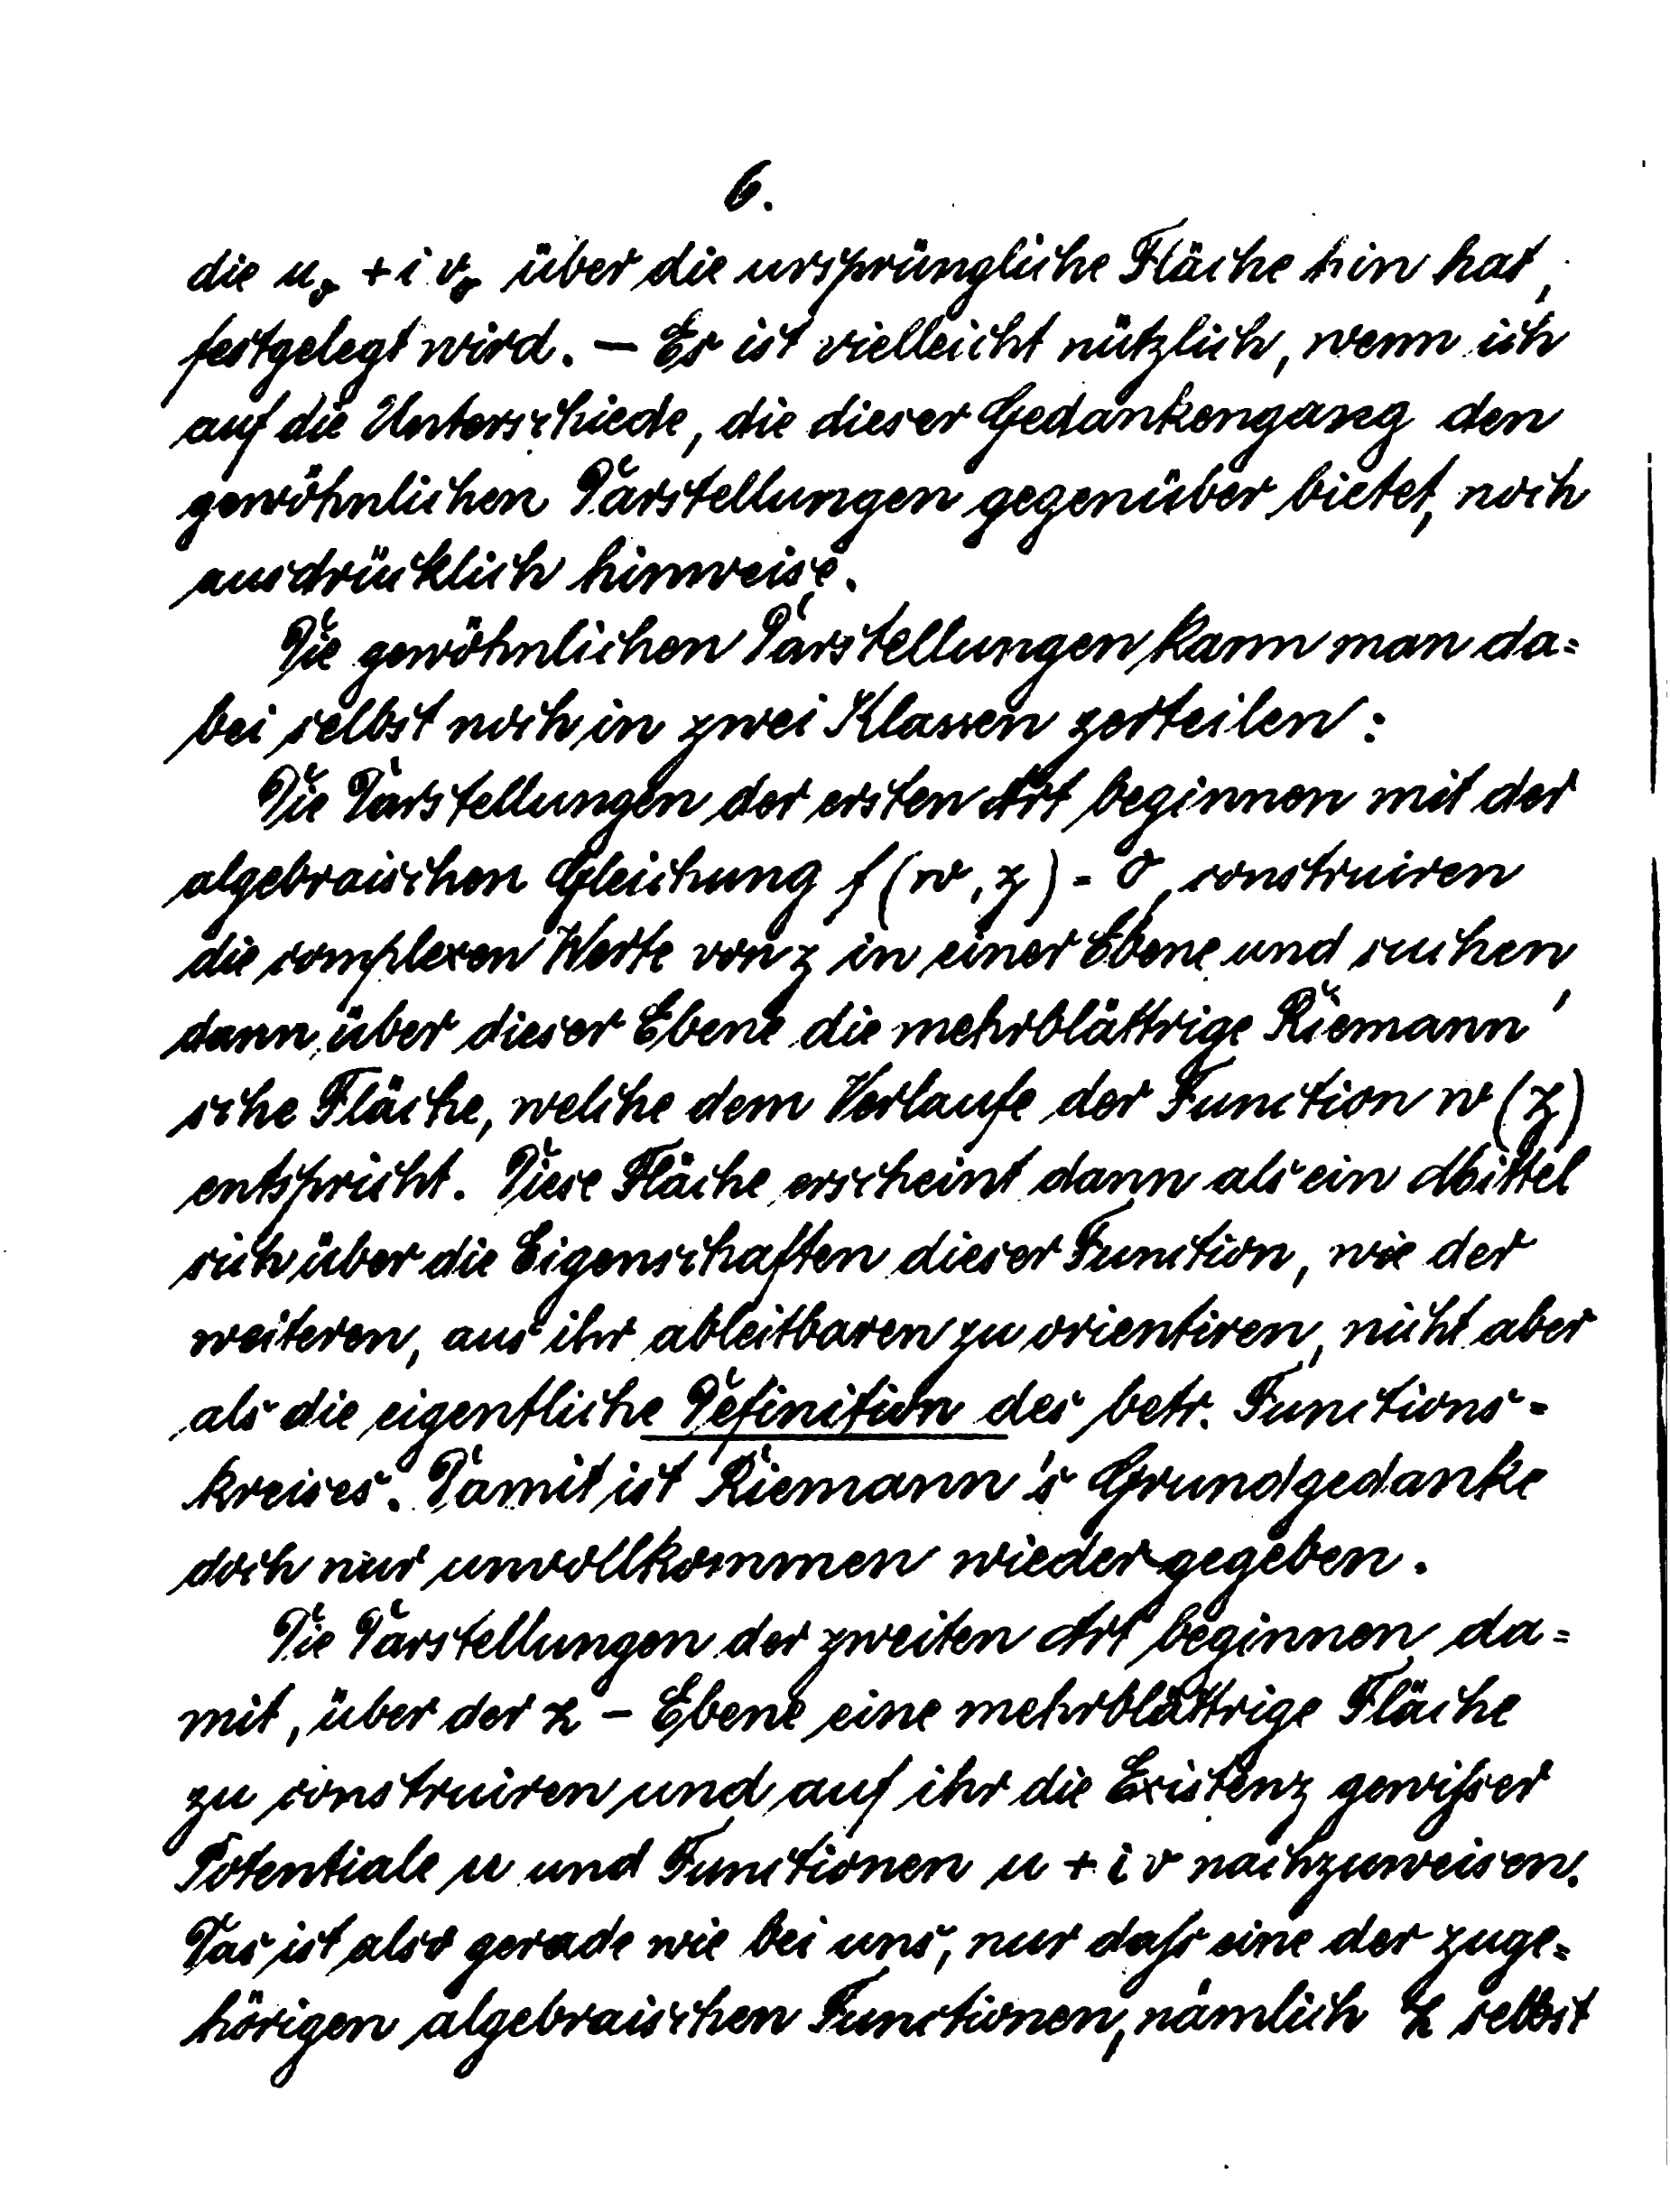 6.
die u₂ + i v₂ über die ursprüngliche Fläche hin hat,
festgelegt wird. — Es ist vielleicht nützlich, wenn ich
auf die Unterschiede, die dieser Gedankengang den
gewöhnlichen Darstellungen gegenüber bietet, noch
ausdrücklich hinweise.
Die gewöhnlichen Darstellungen kann man da=
bei selbst noch in zwei Klassen zerteilen:
Die Darstellungen der ersten Art beginnen mit der
algebraischen Gleichung f (w, z) = 0, construiren
die complexen Werte von z in einer Ebene und suchen
dann über dieser Ebene die mehrblättrige Riemann'
sche Fläche, welche dem Verlaufe der Function w (z)
entspricht. Diese Fläche erscheint dann als ein Mittel
sich über die Eigenschaften dieser Function, wie der
weiteren, aus ihr ableitbaren zu orientiren, nicht aber
als die eigentliche Definition des betr. Functions-
kreises. Damit ist Riemann's Grundgedanke
doch nur unvollkommen wiedergegeben.
Die Darstellungen der zweiten Art beginnen da=
mit, über der z - Ebene eine mehrblättrige Fläche
zu construiren und auf ihr die Existenz gewisser
Potentiale u und Functionen u + i v nachzuweisen.
Das ist also gerade wie bei uns, nur dass eine der zuge=
hörigen algebraischen Functionen, nämlich z selbst